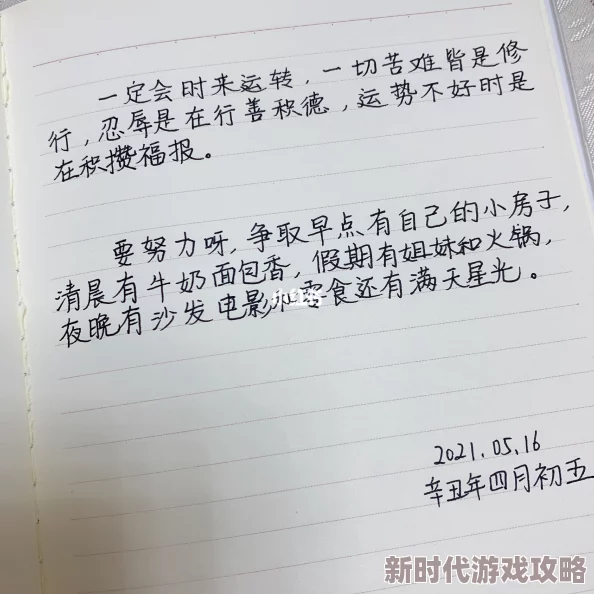 一定会时来运转，一切苦难皆是修
行，忍辱是在行善积德，运势不好时是
在积攒福报。
要努力呀，争取早点有自己的小房子，
清晨有牛奶面包香，假期有姐妹和火锅，
夜晚有沙发电影和零食还有满天星光。
2021.05.16
辛丑年四月初五
新时代游戏攻略